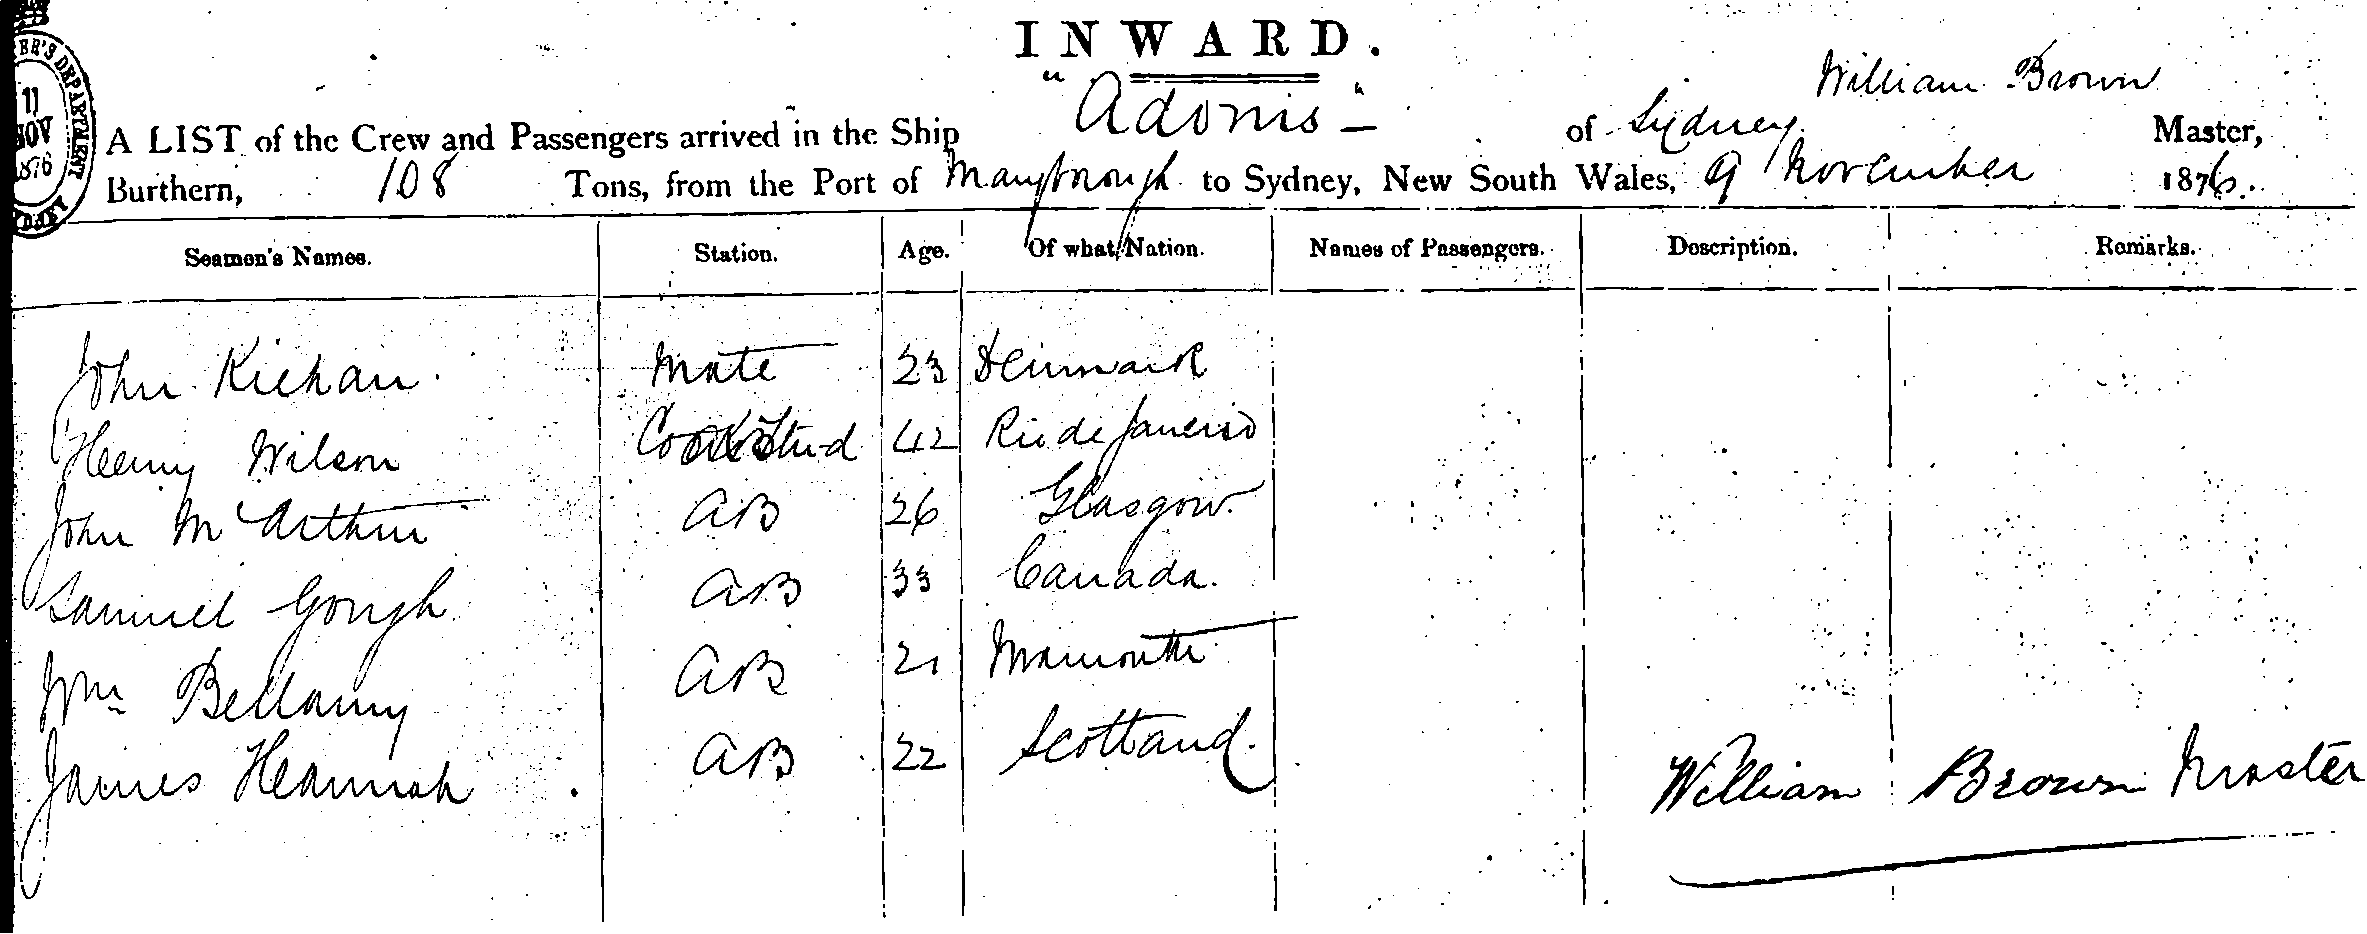 INWARD.
"Adonis"
William Brown
A LIST of the Crew and Passengers arrived in the Ship of Sydney Master,
Burthern, 108 Tons, from the Port of Maryborough to Sydney, New South Wales, 9 November 1876.
11
NOV
1876
DEPARTMENT
Seamen's Names. Station. Age. Of what Nation. Names of Passengers. Description. Remarks.
John Mate 23 Denmark
Henry Wilson Cook & Stud 42 Rio de Janeiro
John McArthur AB 26 Glasgow
Samuel Gough AB 33 Canada.
Wm Bellamy AB 21
James Hannah AB 22 Scotland.
William Brown Master